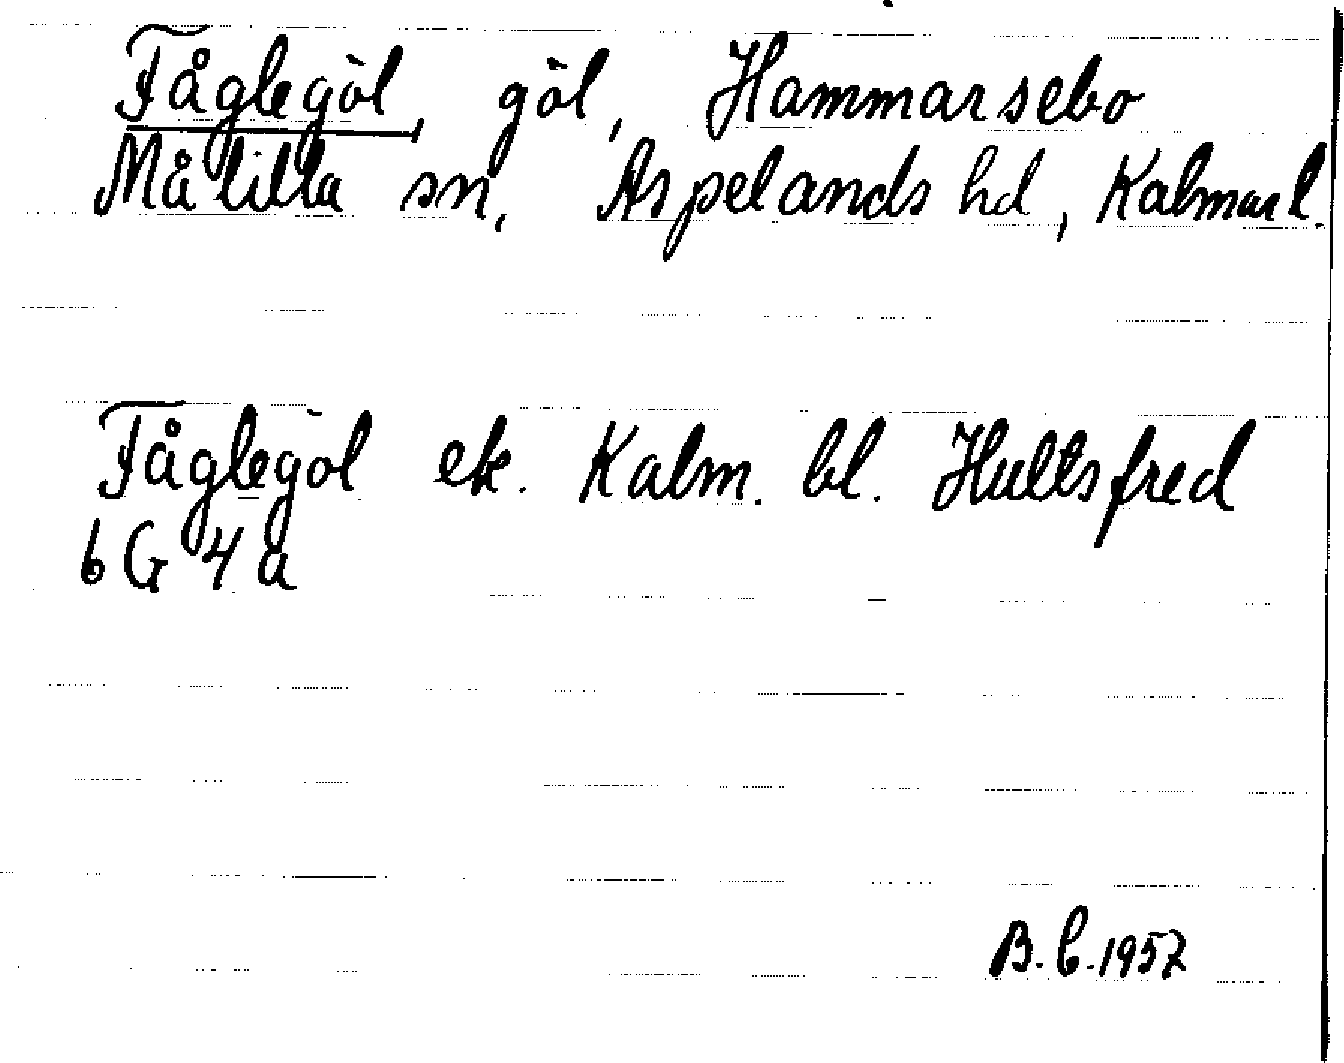 Fåglegöl, göl, Hammarsebo
Målilla sn, Aspelands hd, Kalmar l.
Fåglegöl ek. Kalm. bl. Hultsfred
6 G 4 a
B.C. 1957